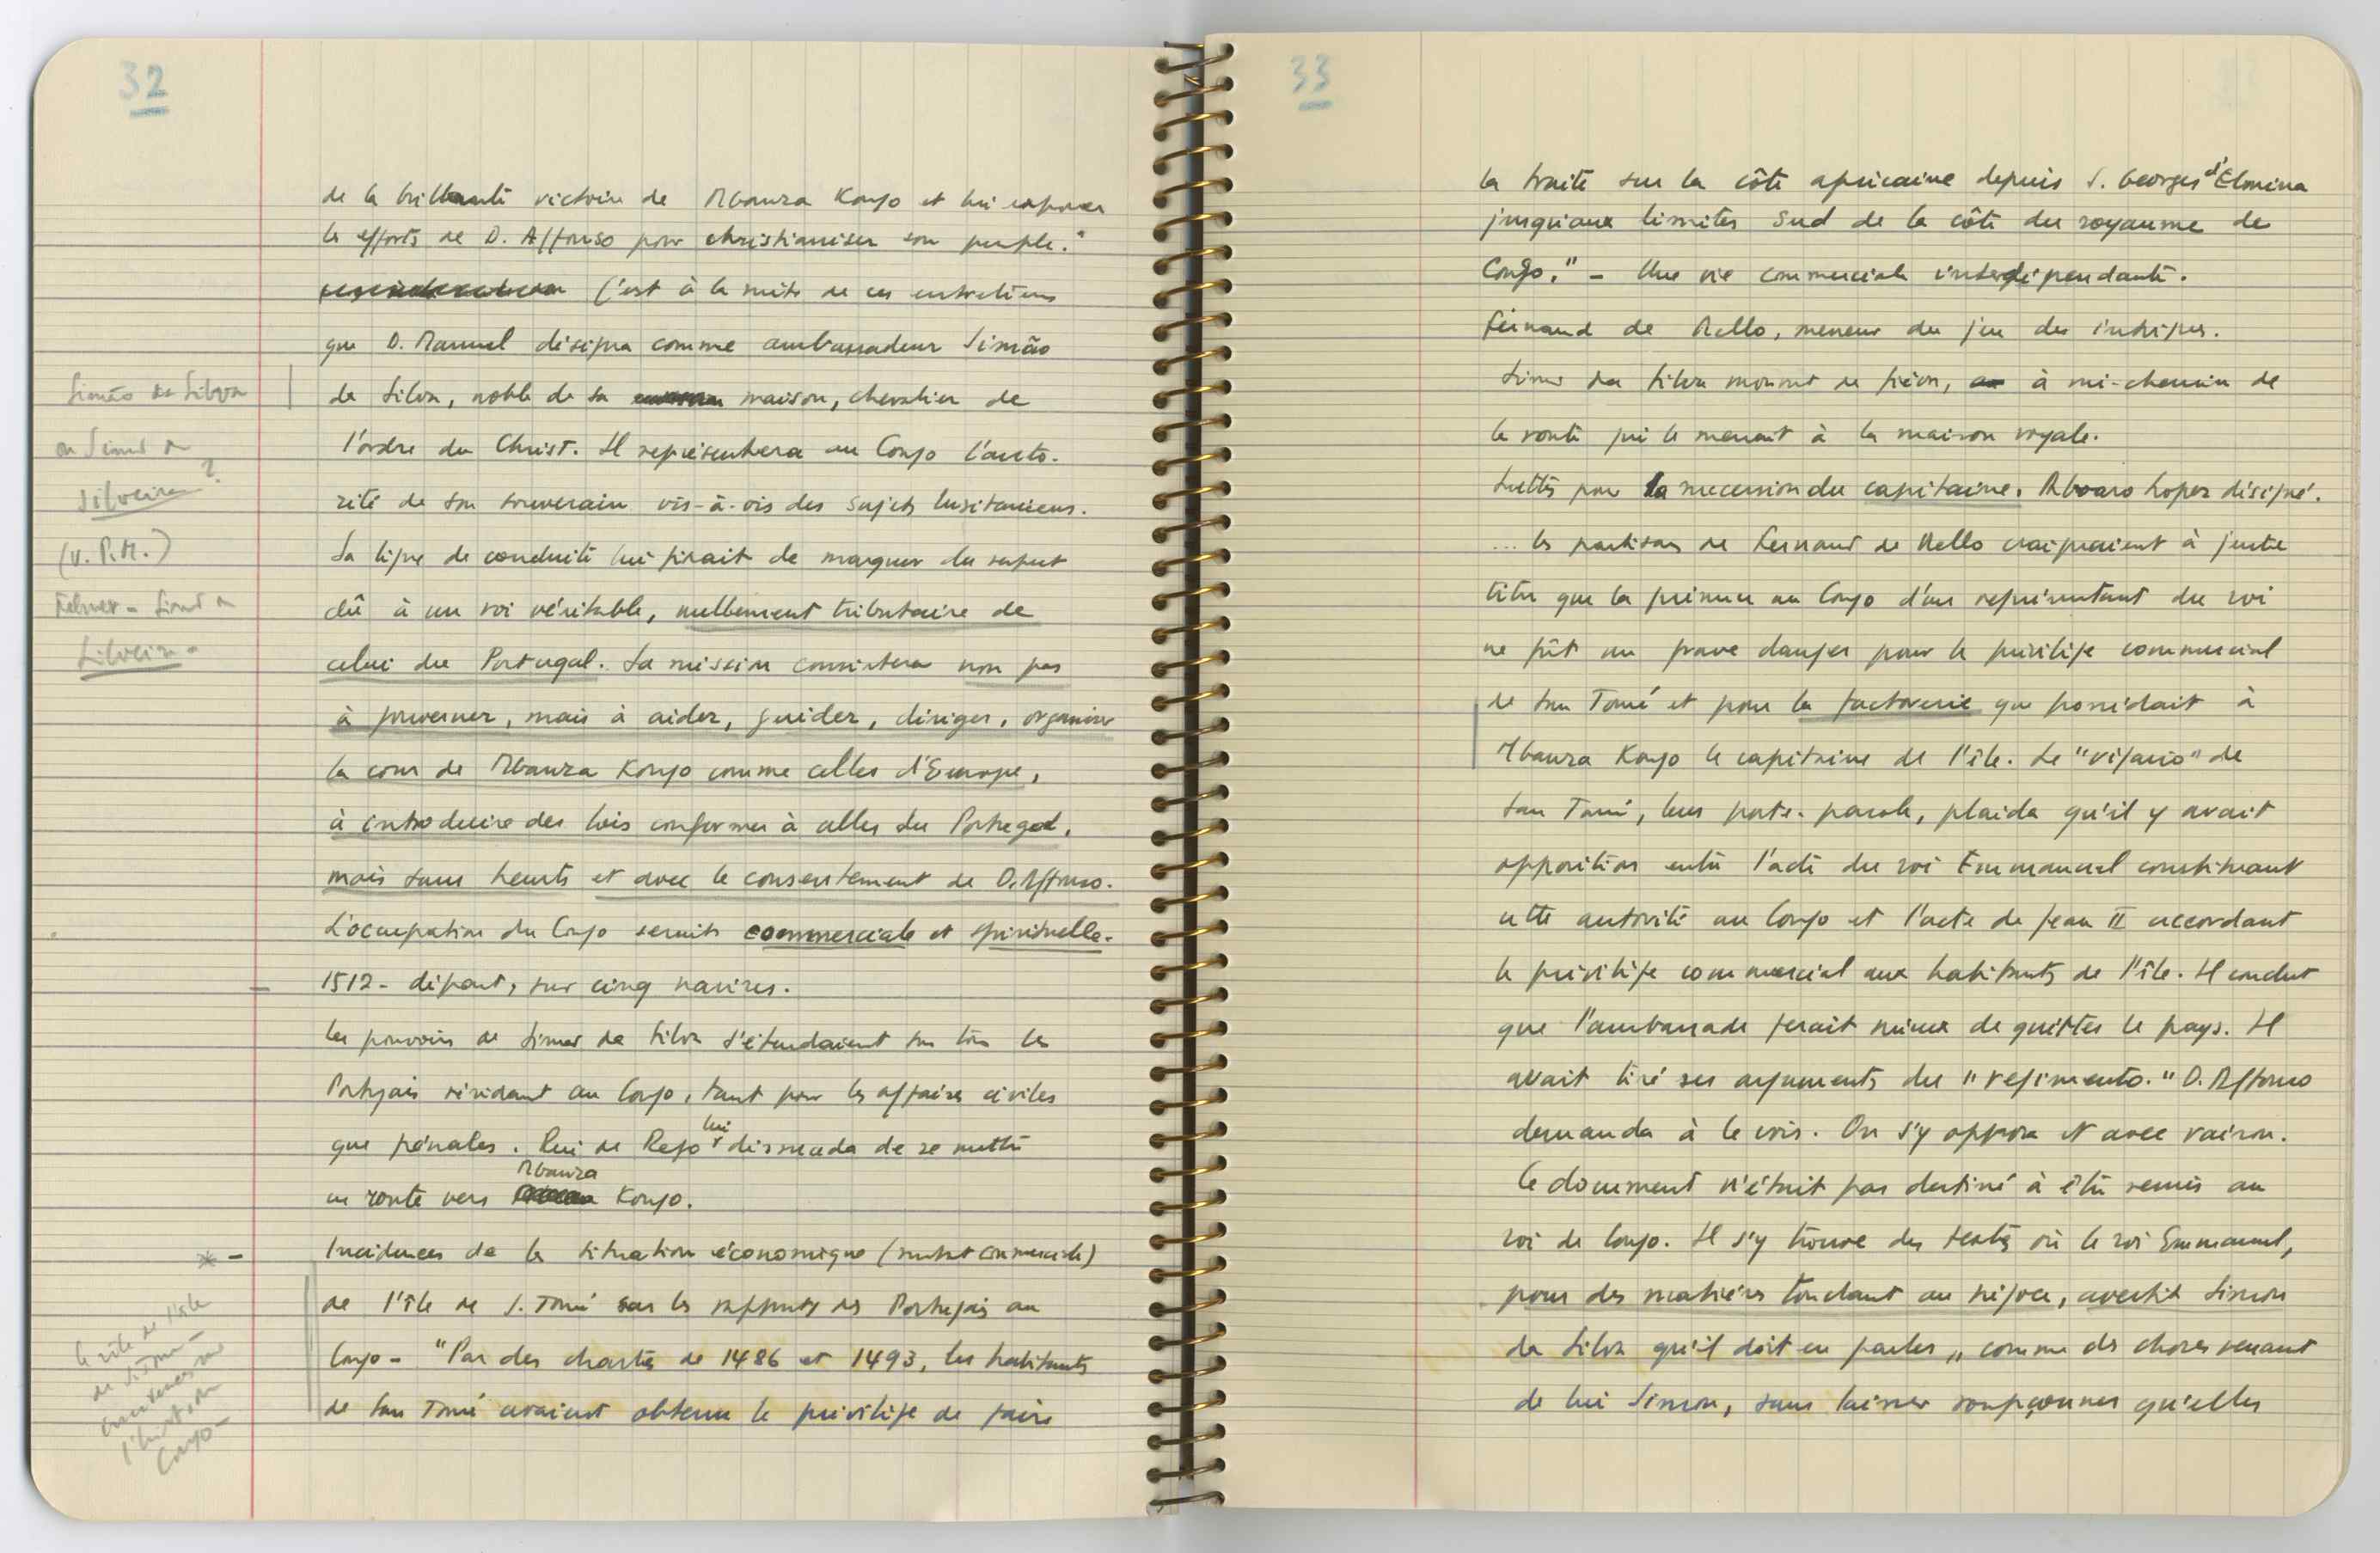 32
de la brillante victoire de Mbanza Kongo et lui exposer
les efforts de D. Affonso pour christianiser son peuple."
C'est à la suite de ces entretiens
que D. Manuel désigna comme ambassadeur Simão
de Silva, noble de sa maison, chevalier de
l'ordre du Christ. Il représentera au Congo l'auto-
rité de son souverain vis-à-vis des sujets lusitaniens.
Sa ligne de conduite lui dirait de marquer du respect
dû à un roi véritable, nullement tributaire de
celui du Portugal. Sa mission consistera non pas
à gouverner, mais à aider, guider, diriger, organiser
la cour de Mbanza Kongo comme celles d'Europe,
à introduire des lois conformes à celles du Portugal,
mais sans heurts et avec le consentement de D. Affonso.
L'occupation du Congo serait commerciale et spirituelle.
1512 - départ, sur cinq navires.
Les pouvoirs de Simon da Silva s'étendaient sur tous les
Portugais résidant au Congo, tant pour les affaires civiles
que pénales. Rui de Rego lui dissuada de se mettre
en route vers Mbanza Kongo.
Incidences de la situation économique (surtout commerciale)
de l'île de S. Tomé sur les rapports des Portugais au
Congo - "Par des chartes de 1486 et 1493, les habitants
de San Tomé avaient obtenu le privilège de faire
Simão de Silva
ou Simon de
Silveira ?
(v. P.M.)
Felner - Simon de
Silveira -
le rôle de l'île
de S. Tomé -
dans l'hist. du
Congo -
33
la traite sur la côte africaine depuis S. Georges d'Elmina
jusqu'aux limites sud de la côte du royaume de
Congo." - Une vie commerciale interdépendante.
Fernand de Mello, meneur du jeu des intrigues.
Simon da Silva mourut de fièvre, à mi-chemin de
la route qui le menait à la maison royale.
Luttes pour la succession du capitaine. Alvaro Lopez désigné.
... les partisans de Fernand de Mello craignaient à juste
titre que la présence au Congo d'un représentant du roi
ne fût un grave danger pour le privilège commercial
de San Tomé et pour la factorerie que possédait à
Mbanza Kongo le capitaine de l'île. Le "vigario" de
San Tomé, leur porte-parole, plaida qu'il y avait
opposition entre l'acte du roi Emmanuel constituant
cette autorité au Congo et l'acte de Jean II accordant
le privilège commercial aux habitants de l'île. Il conclut
que l'ambassade ferait mieux de quitter le pays. Il
avait tiré ses arguments du "regimento." D. Affonso
demanda à le voir. On s'y opposa et avec raison.
Ce document n'était pas destiné à être remis au
roi de Congo. Il s'y trouve des textes où le roi Emmanuel,
pour des matières touchant au négoce, avertit Simon
da Silva qu'il doit en parler „comme de choses venant
de lui Simon, sans laisser soupçonner qu'elles